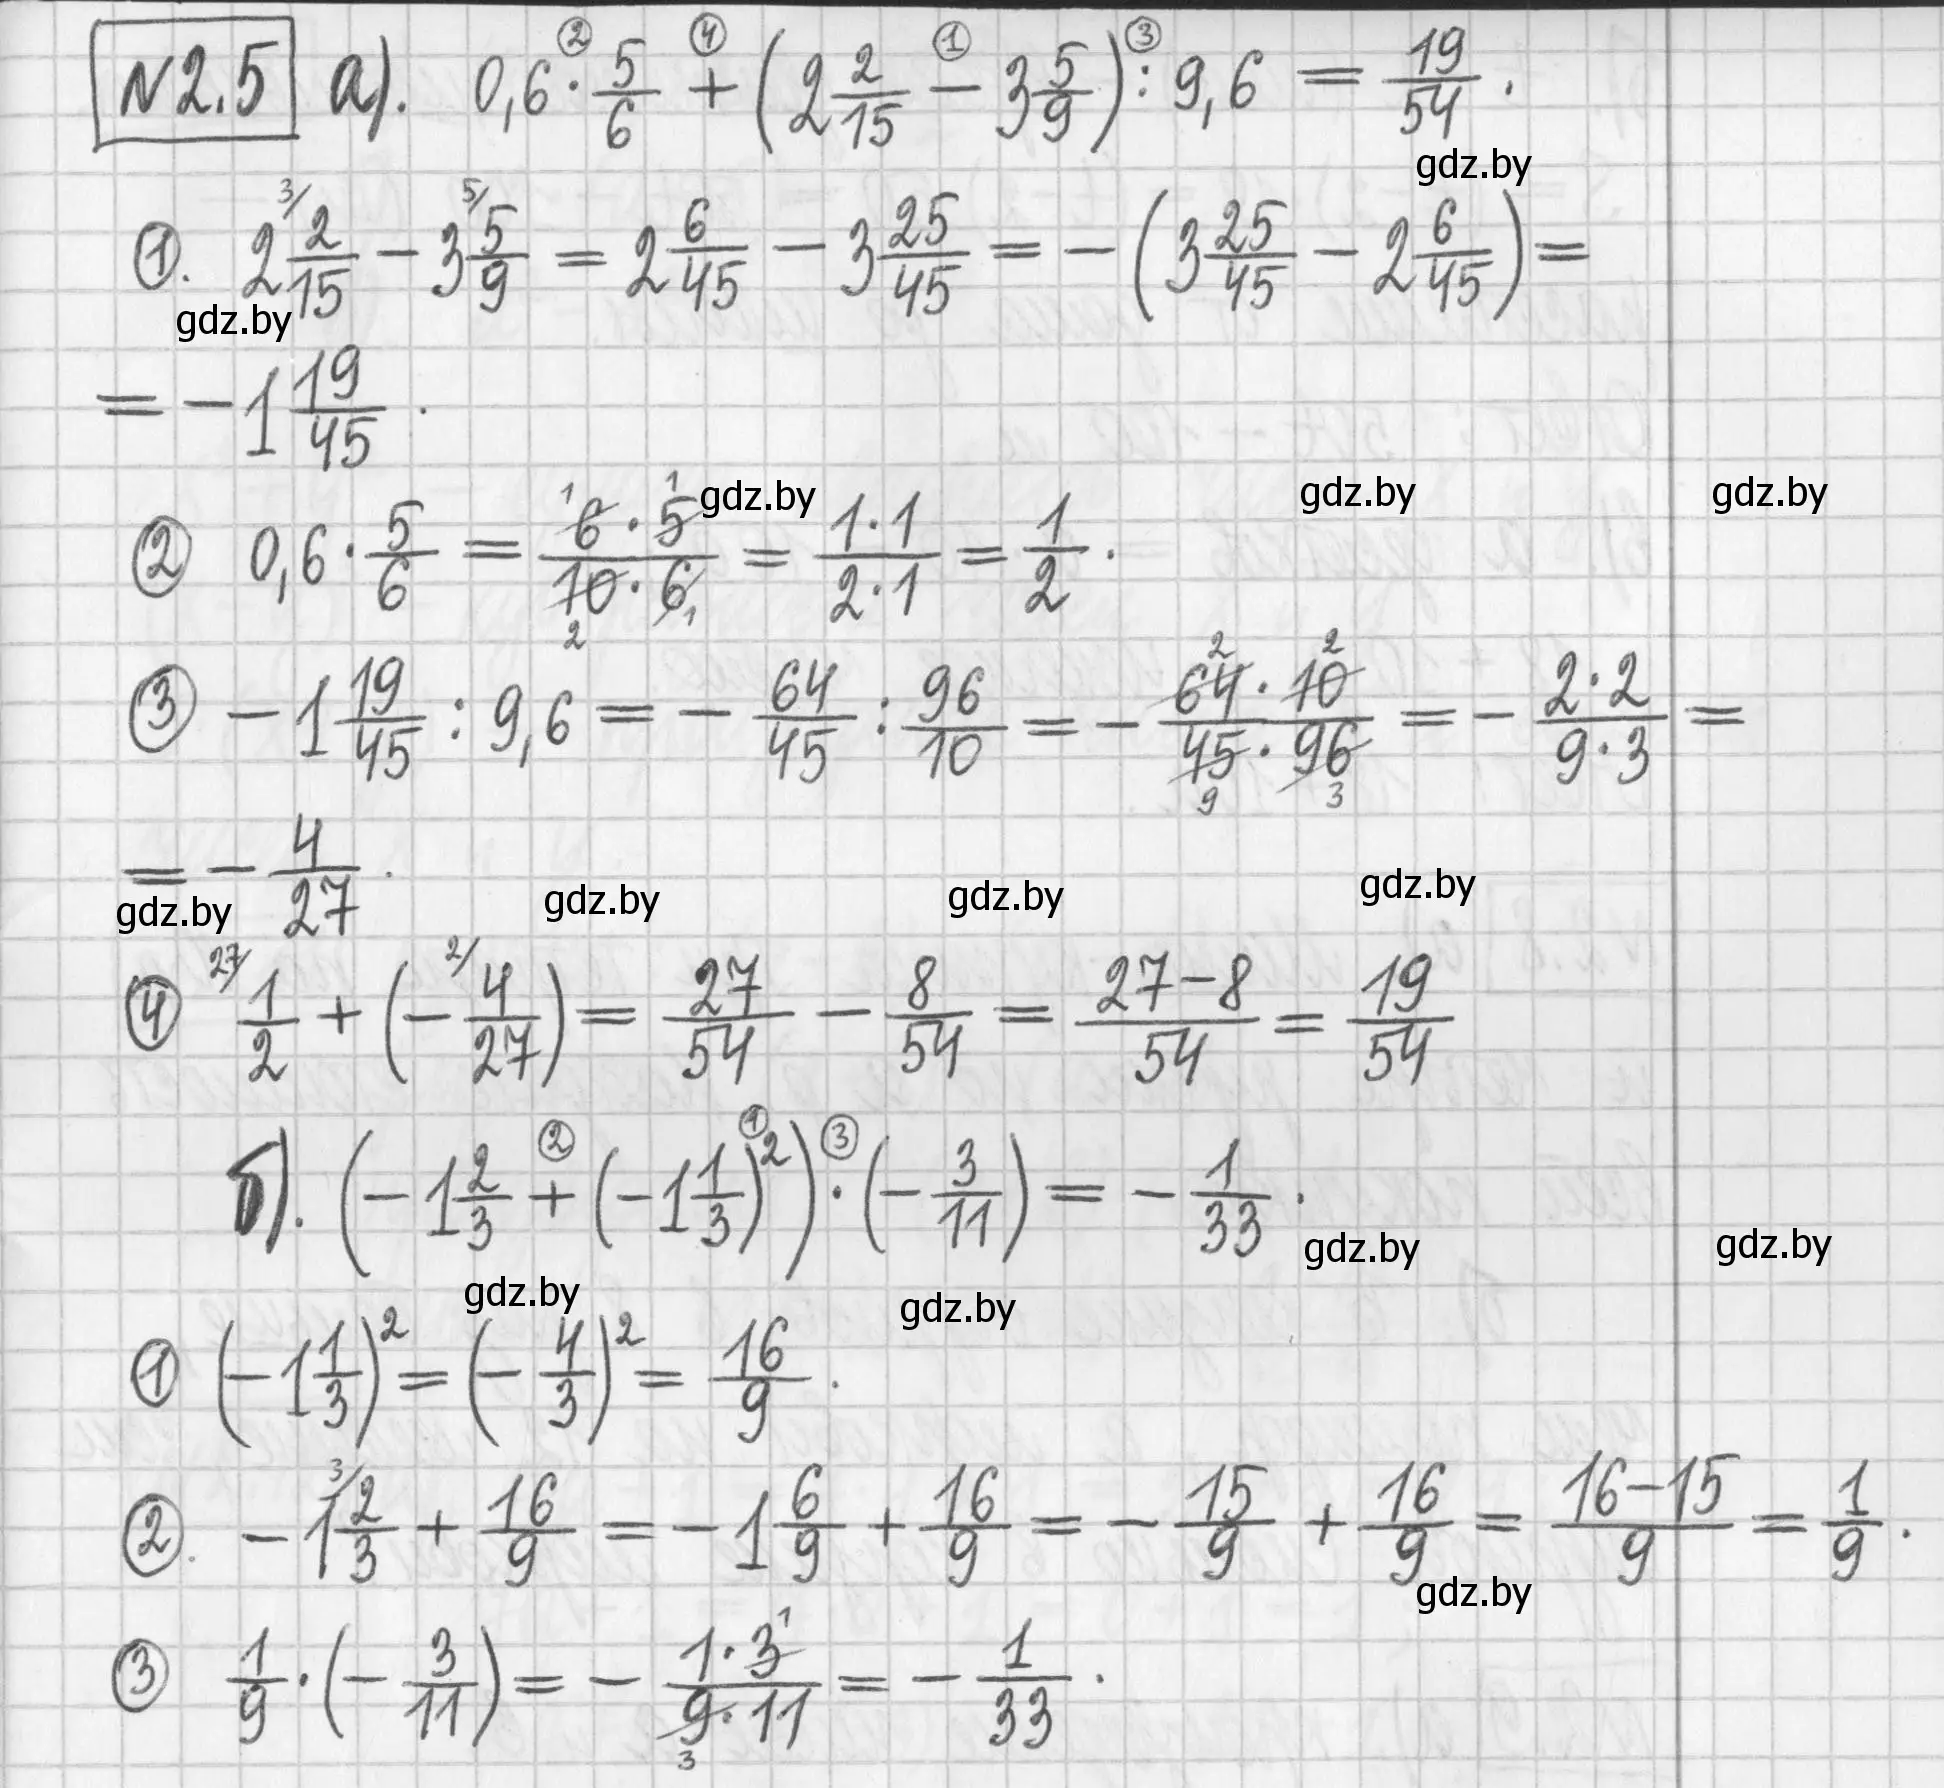 N2.5 а). 0,6 · 5/6 + (2 2/15 − 3 5/9) : 9,6 = 19/54 .
② ④ ① ③
gdz.by
①. 2 2/15 − 3 5/9 = 2 6/45 − 3 25/45 = − (3 25/45 − 2 6/45) =
3/ 5/
gdz.by
= − 1 19/45 .
gdz.by gdz.by gdz.by
② 0,6 · 5/6 = (6 · 5)/(10 · 6) = (1 · 1)/(2 · 1) = 1/2 .
1 1 2 1
③ − 1 19/45 : 9,6 = − 64/45 : 96/10 = − (64 · 10)/(45 · 96) = − (2 · 2)/(9 · 3) =
2 2 9 3
= − 4/27 .
gdz.by gdz.by gdz.by gdz.by
④ 1/2 + (− 4/27) = 27/54 − 8/54 = (27 − 8)/54 = 19/54
27/ 2/
б). (− 1 2/3 + (− 1 1/3)²) · (− 3/11) = − 1/33 .
② ① ③
gdz.by gdz.by gdz.by gdz.by
① (− 1 1/3)² = (− 4/3)² = 16/9 .
②. − 1 2/3 + 16/9 = − 1 6/9 + 16/9 = − 15/9 + 16/9 = (16 − 15)/9 = 1/9 .
3/
gdz.by
③ 1/9 · (− 3/11) = − (1 · 3)/(9 · 11) = − 1/33 .
1 3